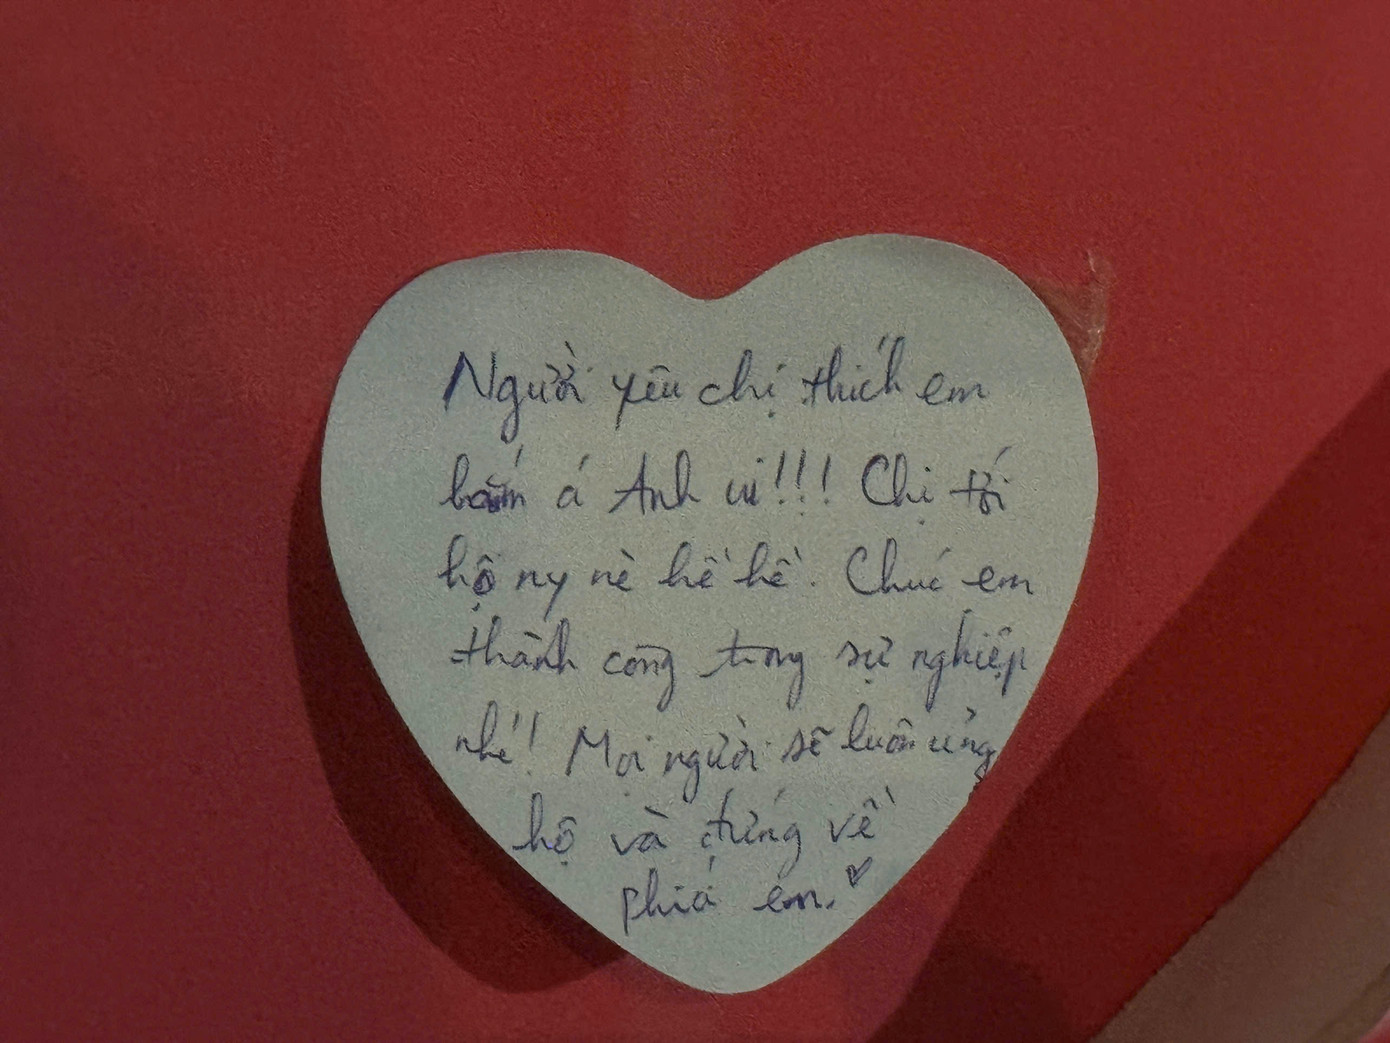 Người yêu chị thích em
lắm á Anh ui!!! Chị tới
hộ ny nè hề hề. Chúc em
thành công trong sự nghiệp
nhé! Mọi người sẽ luôn ủng
hộ và đứng về
phía em.